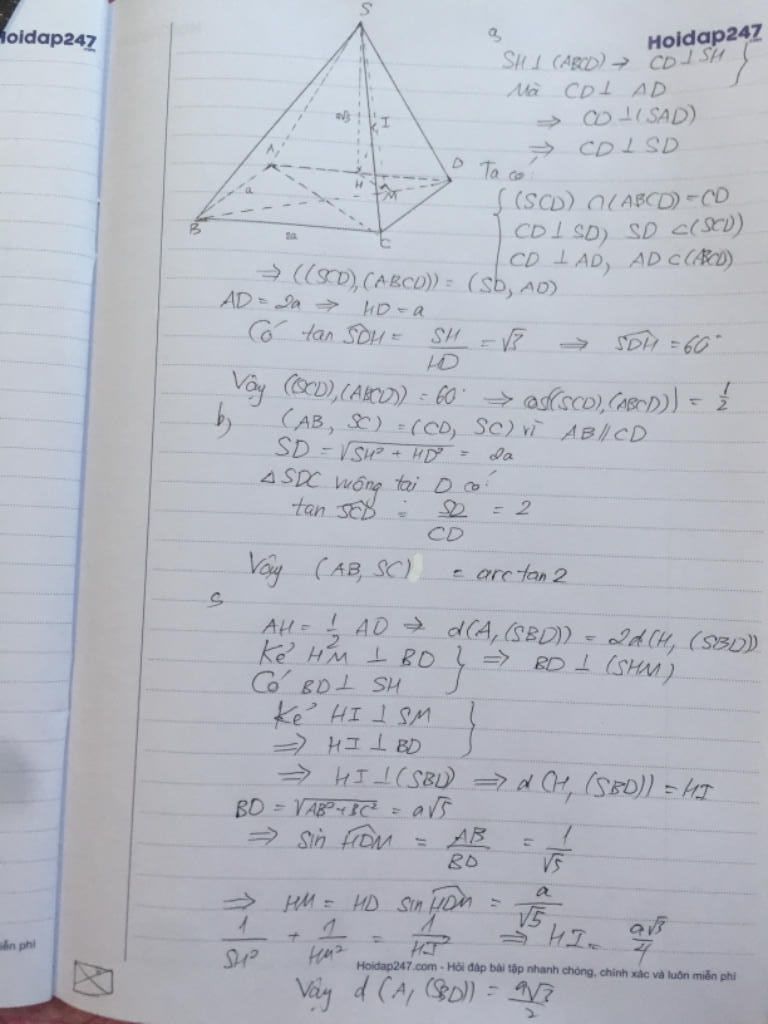 Hoidap247
.com
Hoidap247
.com
S
a√3
I
A
D
a
H
M
B
2a
C
a,
SH ⊥ (ABCD) → CD ⊥ SH }
Mà CD ⊥ AD
⇒ CD ⊥ (SAD)
⇒ CD ⊥ SD
Ta có:
{ (SCD) ∩ (ABCD) = CD
CD ⊥ SD, SD ⊂ (SCD)
CD ⊥ AD, AD ⊂ (ABCD)
⇒ ((SCD), (ABCD)) = (SD, AD)
AD = 2a ⇒ HD = a
Có tan SDH = SH/HD = √3 ⇒ SDH = 60°
Vậy ((SCD), (ABCD)) = 60° ⇒ cos((SCD), (ABCD)) = 1/2
b, (AB, SC) = (CD, SC) vì AB // CD
SD = √SH² + HD² = 2a
△SDC vuông tại D có:
tan SCD = SD/CD = 2
Vậy (AB, SC) = arctan 2
c,
AH = 1/2 AD ⇒ d(A, (SBD)) = 2d(H, (SBD))
Kẻ HM ⊥ BD } ⇒ BD ⊥ (SHM)
Có BD ⊥ SH
Kẻ HI ⊥ SM }
⇒ HI ⊥ BD
⇒ HI ⊥ (SBD) ⇒ d(H, (SBD)) = HI
BD = √AB² + BC² = a√5
⇒ sin HDM = AB/BD = 1/√5
⇒ HM = HD sin HDM = a/√5
1/SH² + 1/HM² = 1/HI² ⇒ HI = a√3/4
iễn phí
Hoidap247.com - Hỏi đáp bài tập nhanh chóng, chính xác và luôn miễn phí
Vậy d(A, (SBD)) = a√3/2